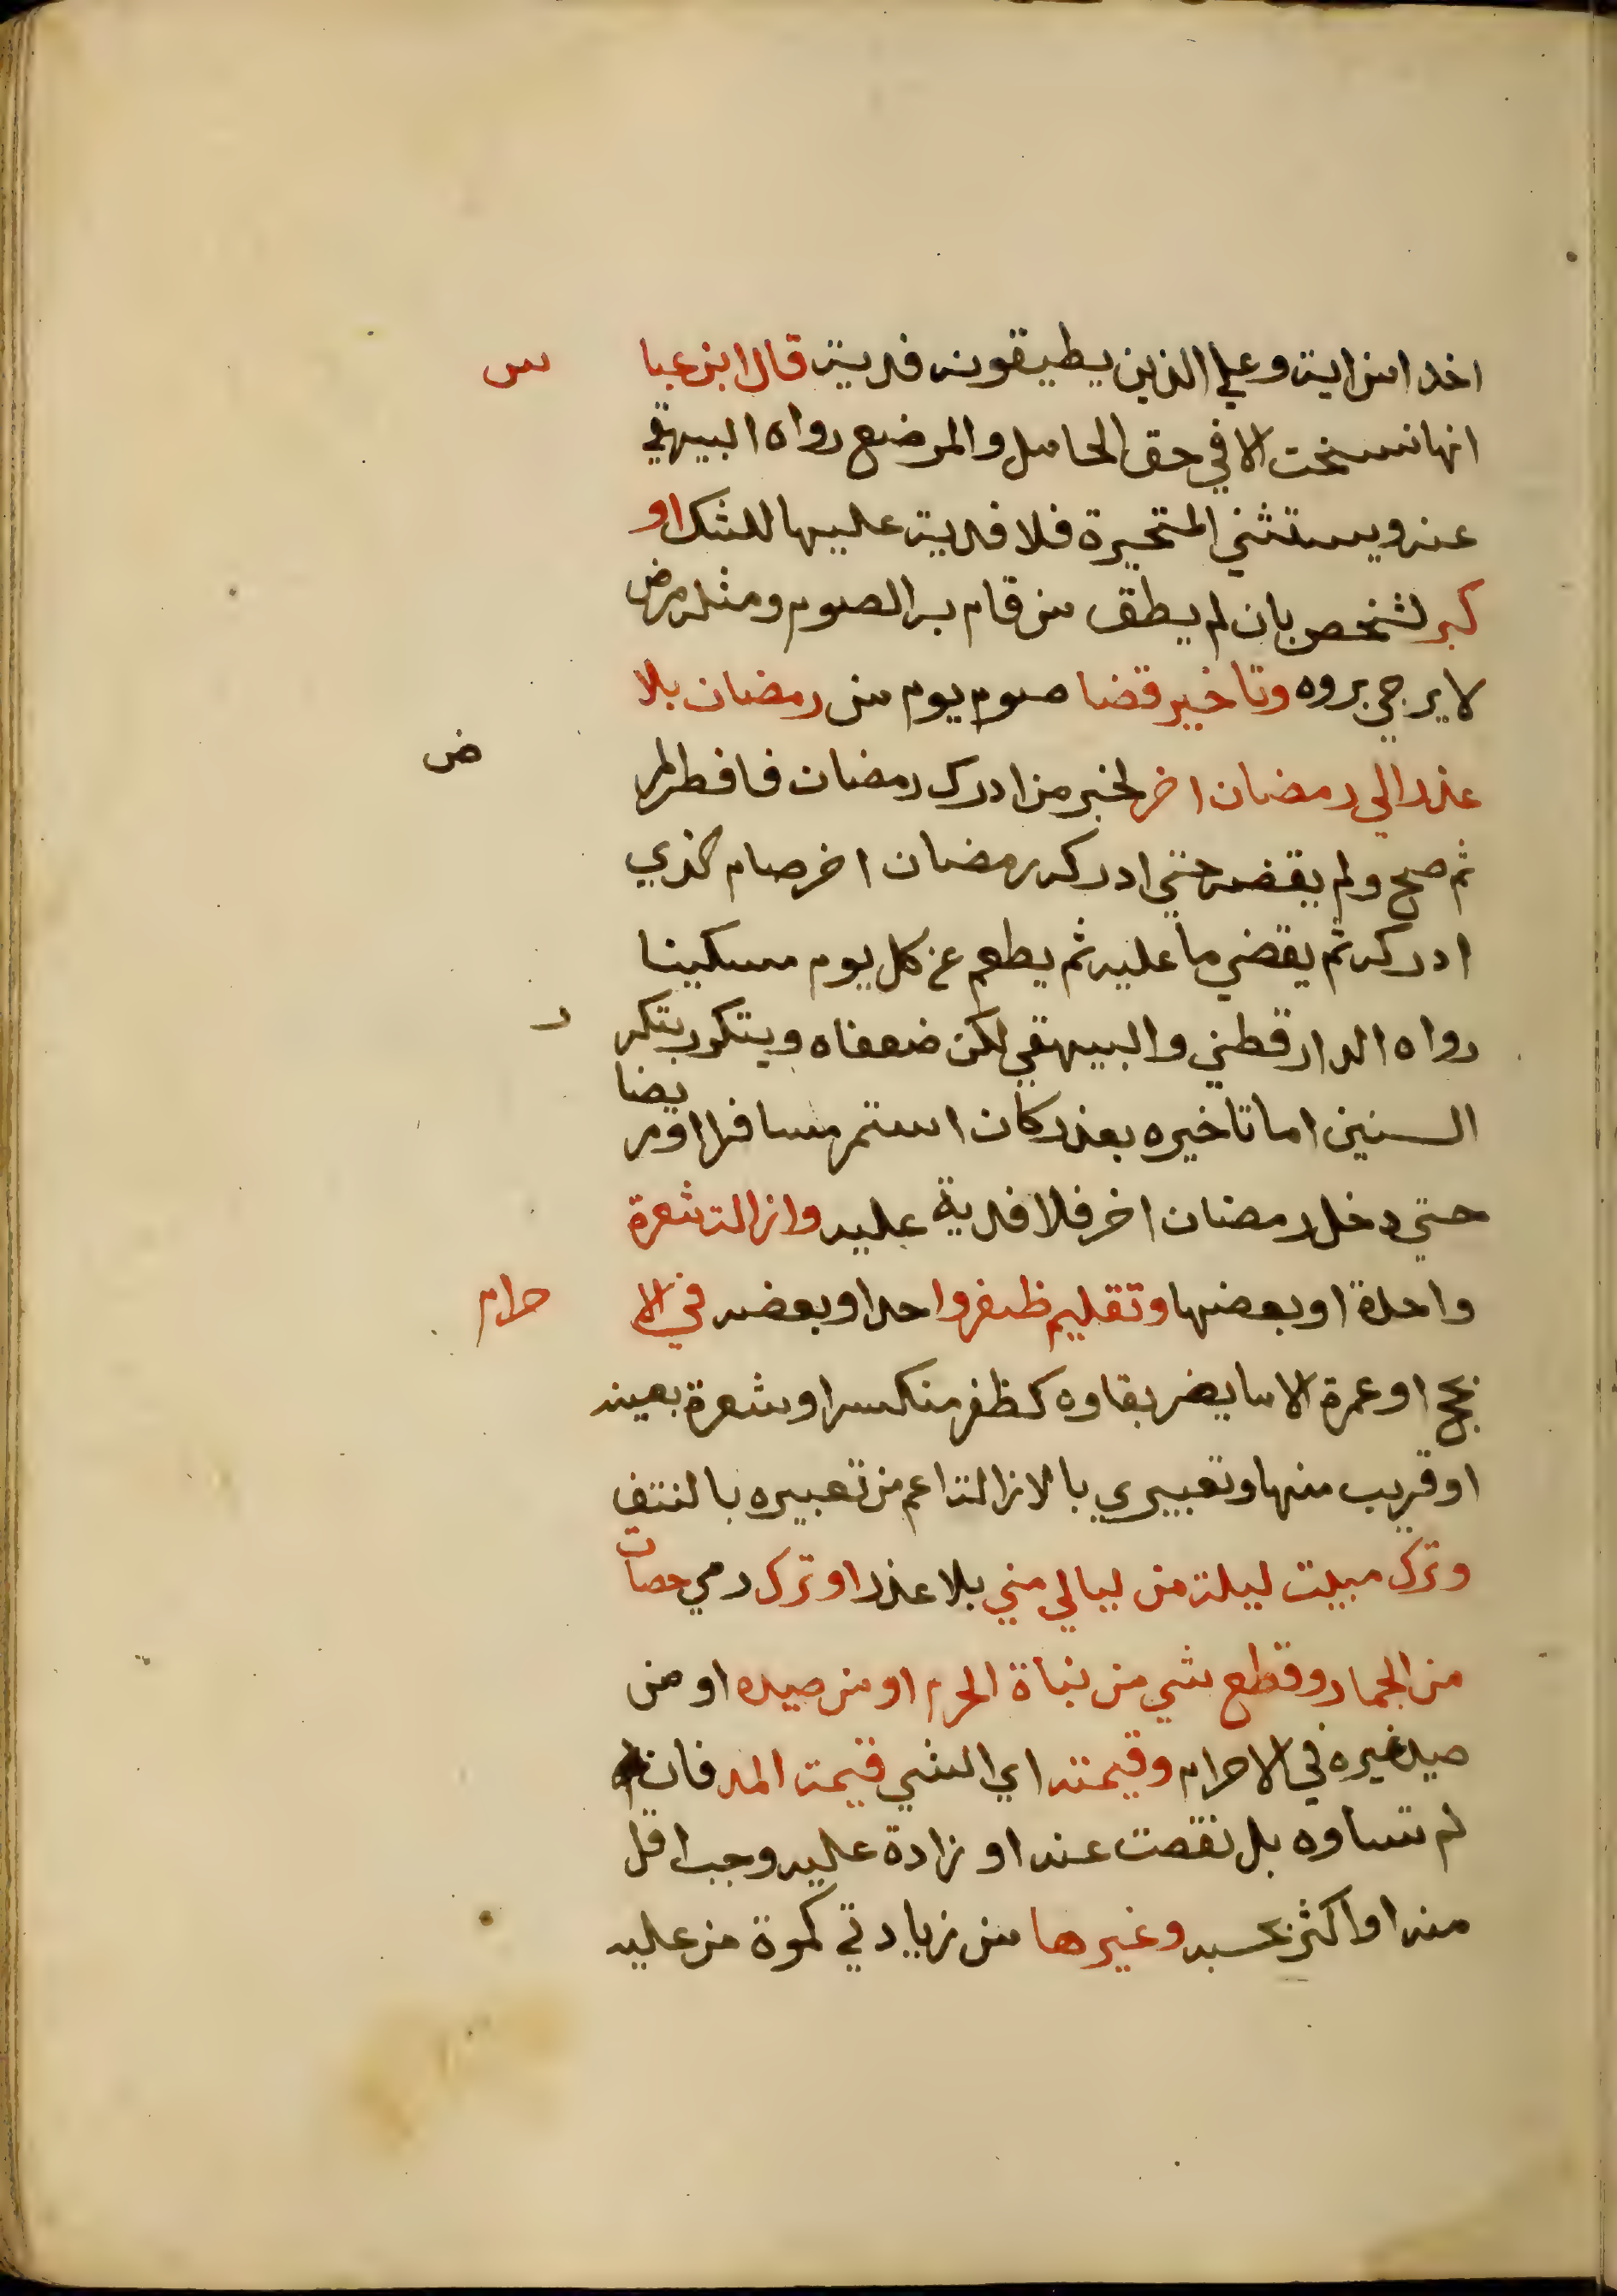 اخذا من اية وعلي الذين يطيقونه فدية قال ابن عباس
انها نسخت الا في حق الحامل والمرضع رواه البيهقي
عنه ويستثني المتحيرة فلا فدية عليها للشك او
كبر لشخص بان لم يطق من قام به الصوم ومثله مرض
لا يرجي بروه وتاخير قضا صوم يوم من رمضان بلا
عذر الي رمضان اخر لخبر من ادرك رمضان فافطر لمرض
ثم صح ولم يقضه حتي ادركه رمضان اخر صام الذي
ادركه ثم يقضي ما عليه ثم يطعم عن كل يوم مسكينا
رواه الدارقطني والبيهقي لكن ضعفاه ويتكرر بتكرر
السنين اما تاخيره بعذر كان استمر مسافرا او مريضا
حتي دخل رمضان اخر فلا فدية عليه وازالة شعرة
واحدة او بعضها وتقليم ظفر واحد او بعضه في الاحرام
بحج او عمرة الا ما يضر بقاوه كظفر منكسر او شعرة بعينه
او قريب منها وتعبيري بالازالة اعم من تعبيره بالنتف
وترك مبيت ليلة من ليالي مني بلا عذر او ترك رمي حصات
من الجمار وقطع شي من نباة الحرم او من صيده او من
صيد غيره في الاحرام وقيمته اي الشي قيمة المد فان
لم تساوه بل نقصت عنه او زادة عليه وجب اقل
منه او اكثر بحسبه وغيرها من زيادتي كموة من عليه